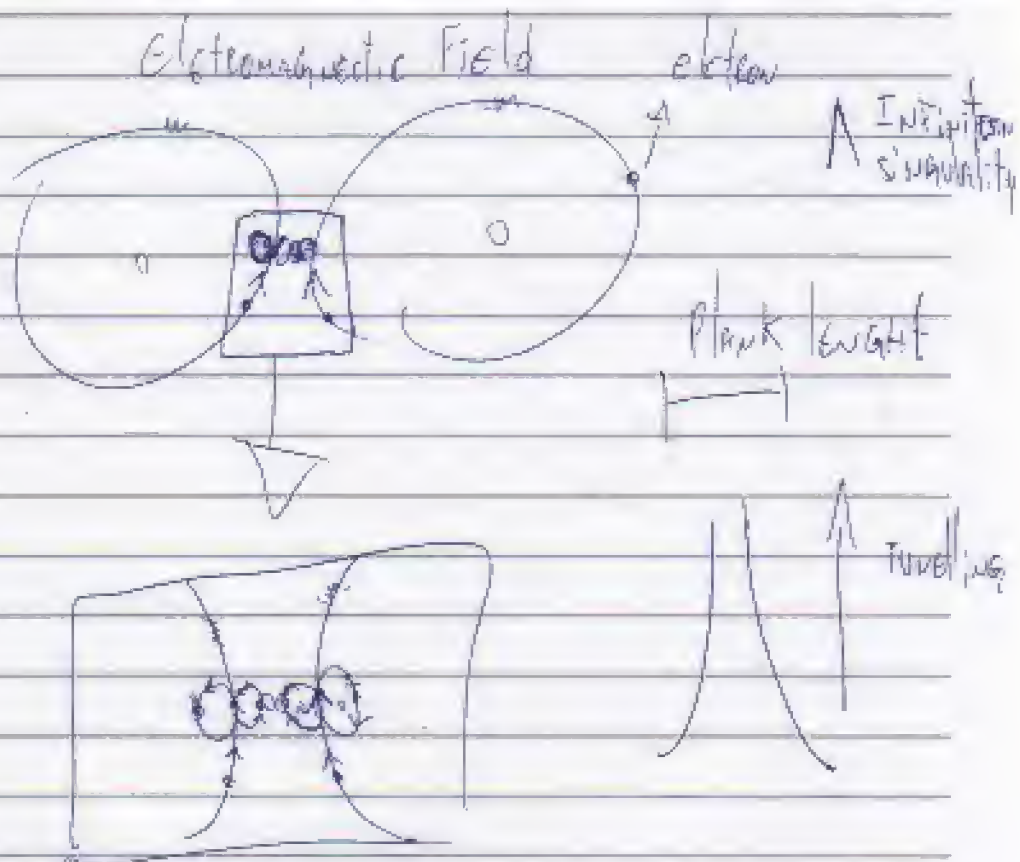 Eletromagnetic Field
elktron
Infinitesm
singularity
Plank lenght
Tunelling